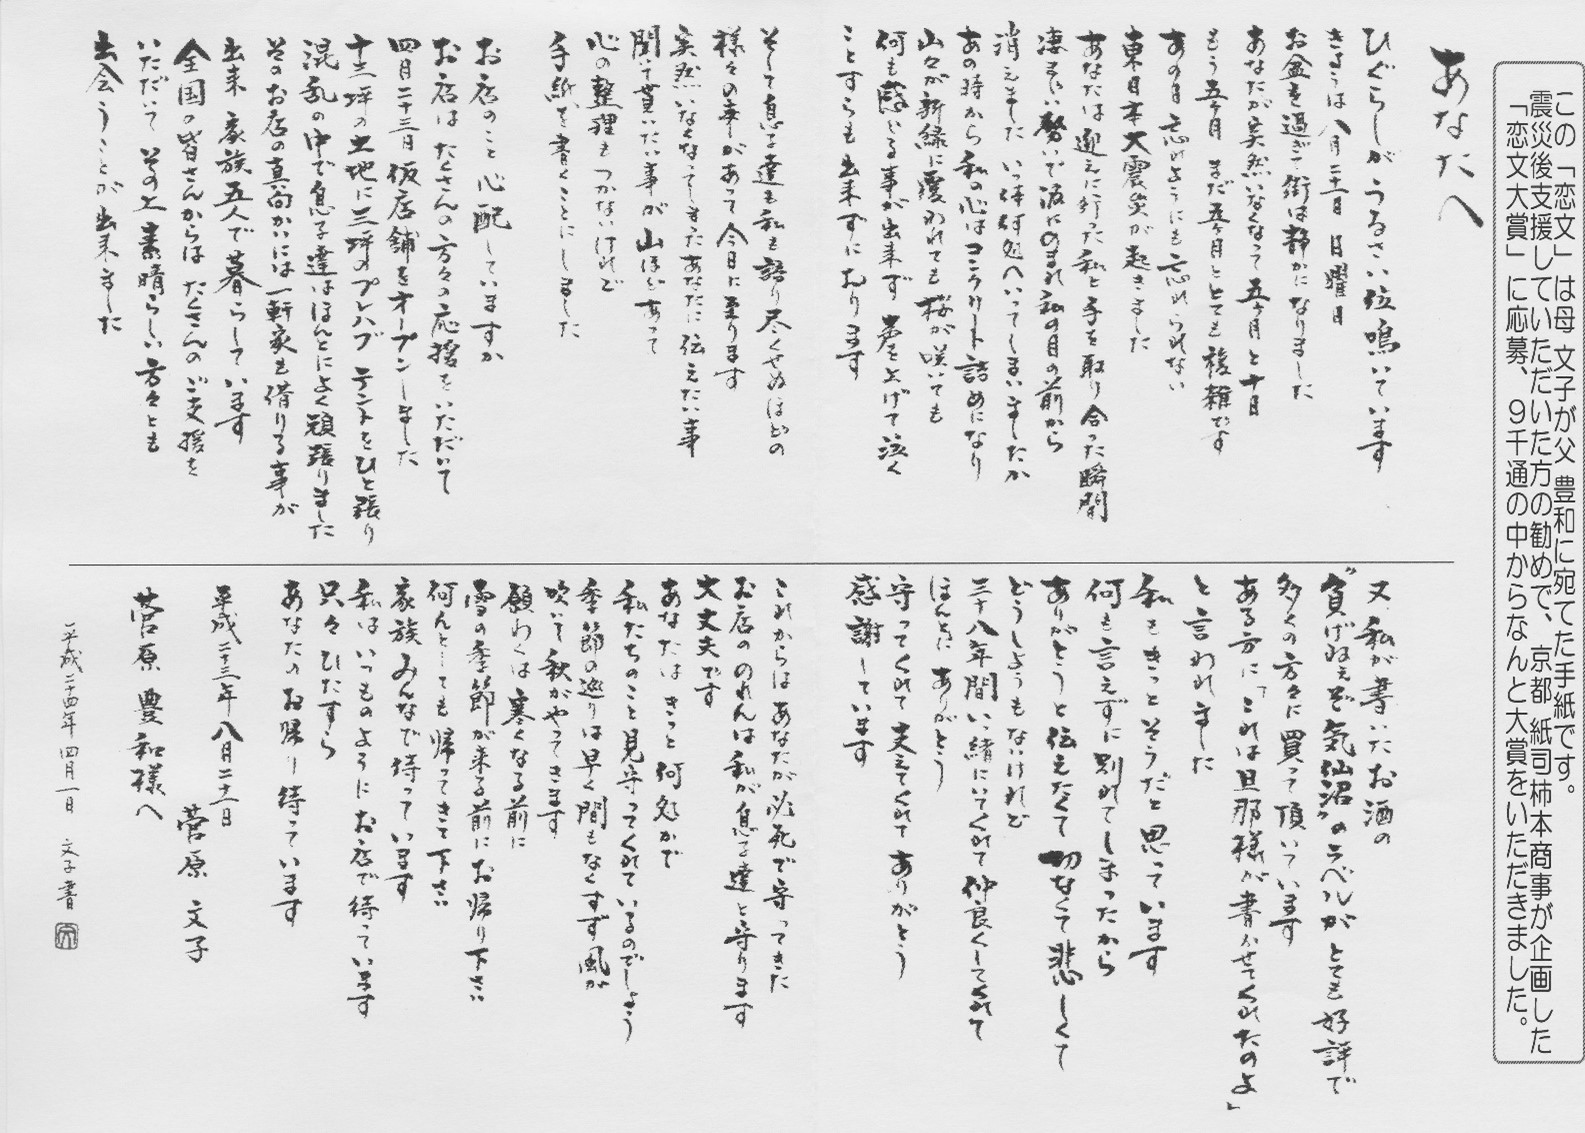 この「恋文」は母 文子が父 豊和に宛てた手紙です。
震災後支援していただいた方の勧めで、京都 紙司柿本商事が企画した
「恋文大賞」に応募、9千通の中からなんと大賞をいただきました。
あなたへ
ひぐらしがうるさい位鳴いています
きょうは八月二十一日 日曜日
お盆も過ぎて街は静かになりました
あなたが突然いなくなって五ヶ月と十日
もう五ヶ月 まだ五ヶ月ととても複雑です
あの日 忘れようにも忘れられない
東日本大震災が起きました
あなたは迎えに行った私と手を取り合った瞬間
凄まじい勢いで波にのまれ私の目の前から
消えました いつ体何処へいってしまいましたか
あの時から私の心はコンクリート詰めになり
山々が新緑に覆われても桜が咲いても
何も感じる事が出来ず 声を上げて泣く
ことすらも出来ずにおります
そして息子達も私も語り尽くせぬほどの
様々の事があって今日に至ります
突然いなくなってしまったあなたに伝えたい事
聞いて貰いたい事が山ほどあって
心の整理もつかないけれど
手紙を書くことにしました
お店のこと心配していますか
お店はたくさんの方々の応援をいただいて
四月二十三日仮店舗をオープンしました
十三坪の土地に三坪のプレハブ テントをひと張り
混乱の中で息子達はほんとによく頑張りました
そのお店の真向かいには一軒家も借りる事が
出来 家族五人で暮らしています
全国の皆さんからは たくさんのご支援を
いただいて その上 素晴らしい方々とも
出会うことが出来ました
又、私が書いたお酒の
“負げねぇぞ気仙沼”のラベルがとても好評で
多くの方々に買って頂いています
ある方に「これは旦那様が書かせてくれたのよ」
と言われました
私もきっとそうだと思っています
何も言えずに別れてしまったから
ありがとうと伝えたくて切なくて悲しくて
どうしようもないけれど
三十八年間いっ緒にいてくれて仲良くしてくれて
ほんとにありがとう
守ってくれて支えてくれてありがとう
感謝しています
これからはあなたが必死で守ってきた
お店ののれんは私が息子達と守ります
大丈夫です
あなたはきっと何処かで
私たちのこと見守ってくれているのでしょう
季節の巡りは早く間もなくすず風が
吹いて秋がやってきます
願わくは寒くなる前に
雪の季節が来る前にお帰り下さい
何んとしても帰ってきて下さい
家族みんなで待っています
私はいつものようにお店で待っています
只々ひたすら
あなたのお帰り待っています
平成二十三年八月二十一日
菅原 文子
菅原豊和様へ
平成二十四年四月一日 文子書